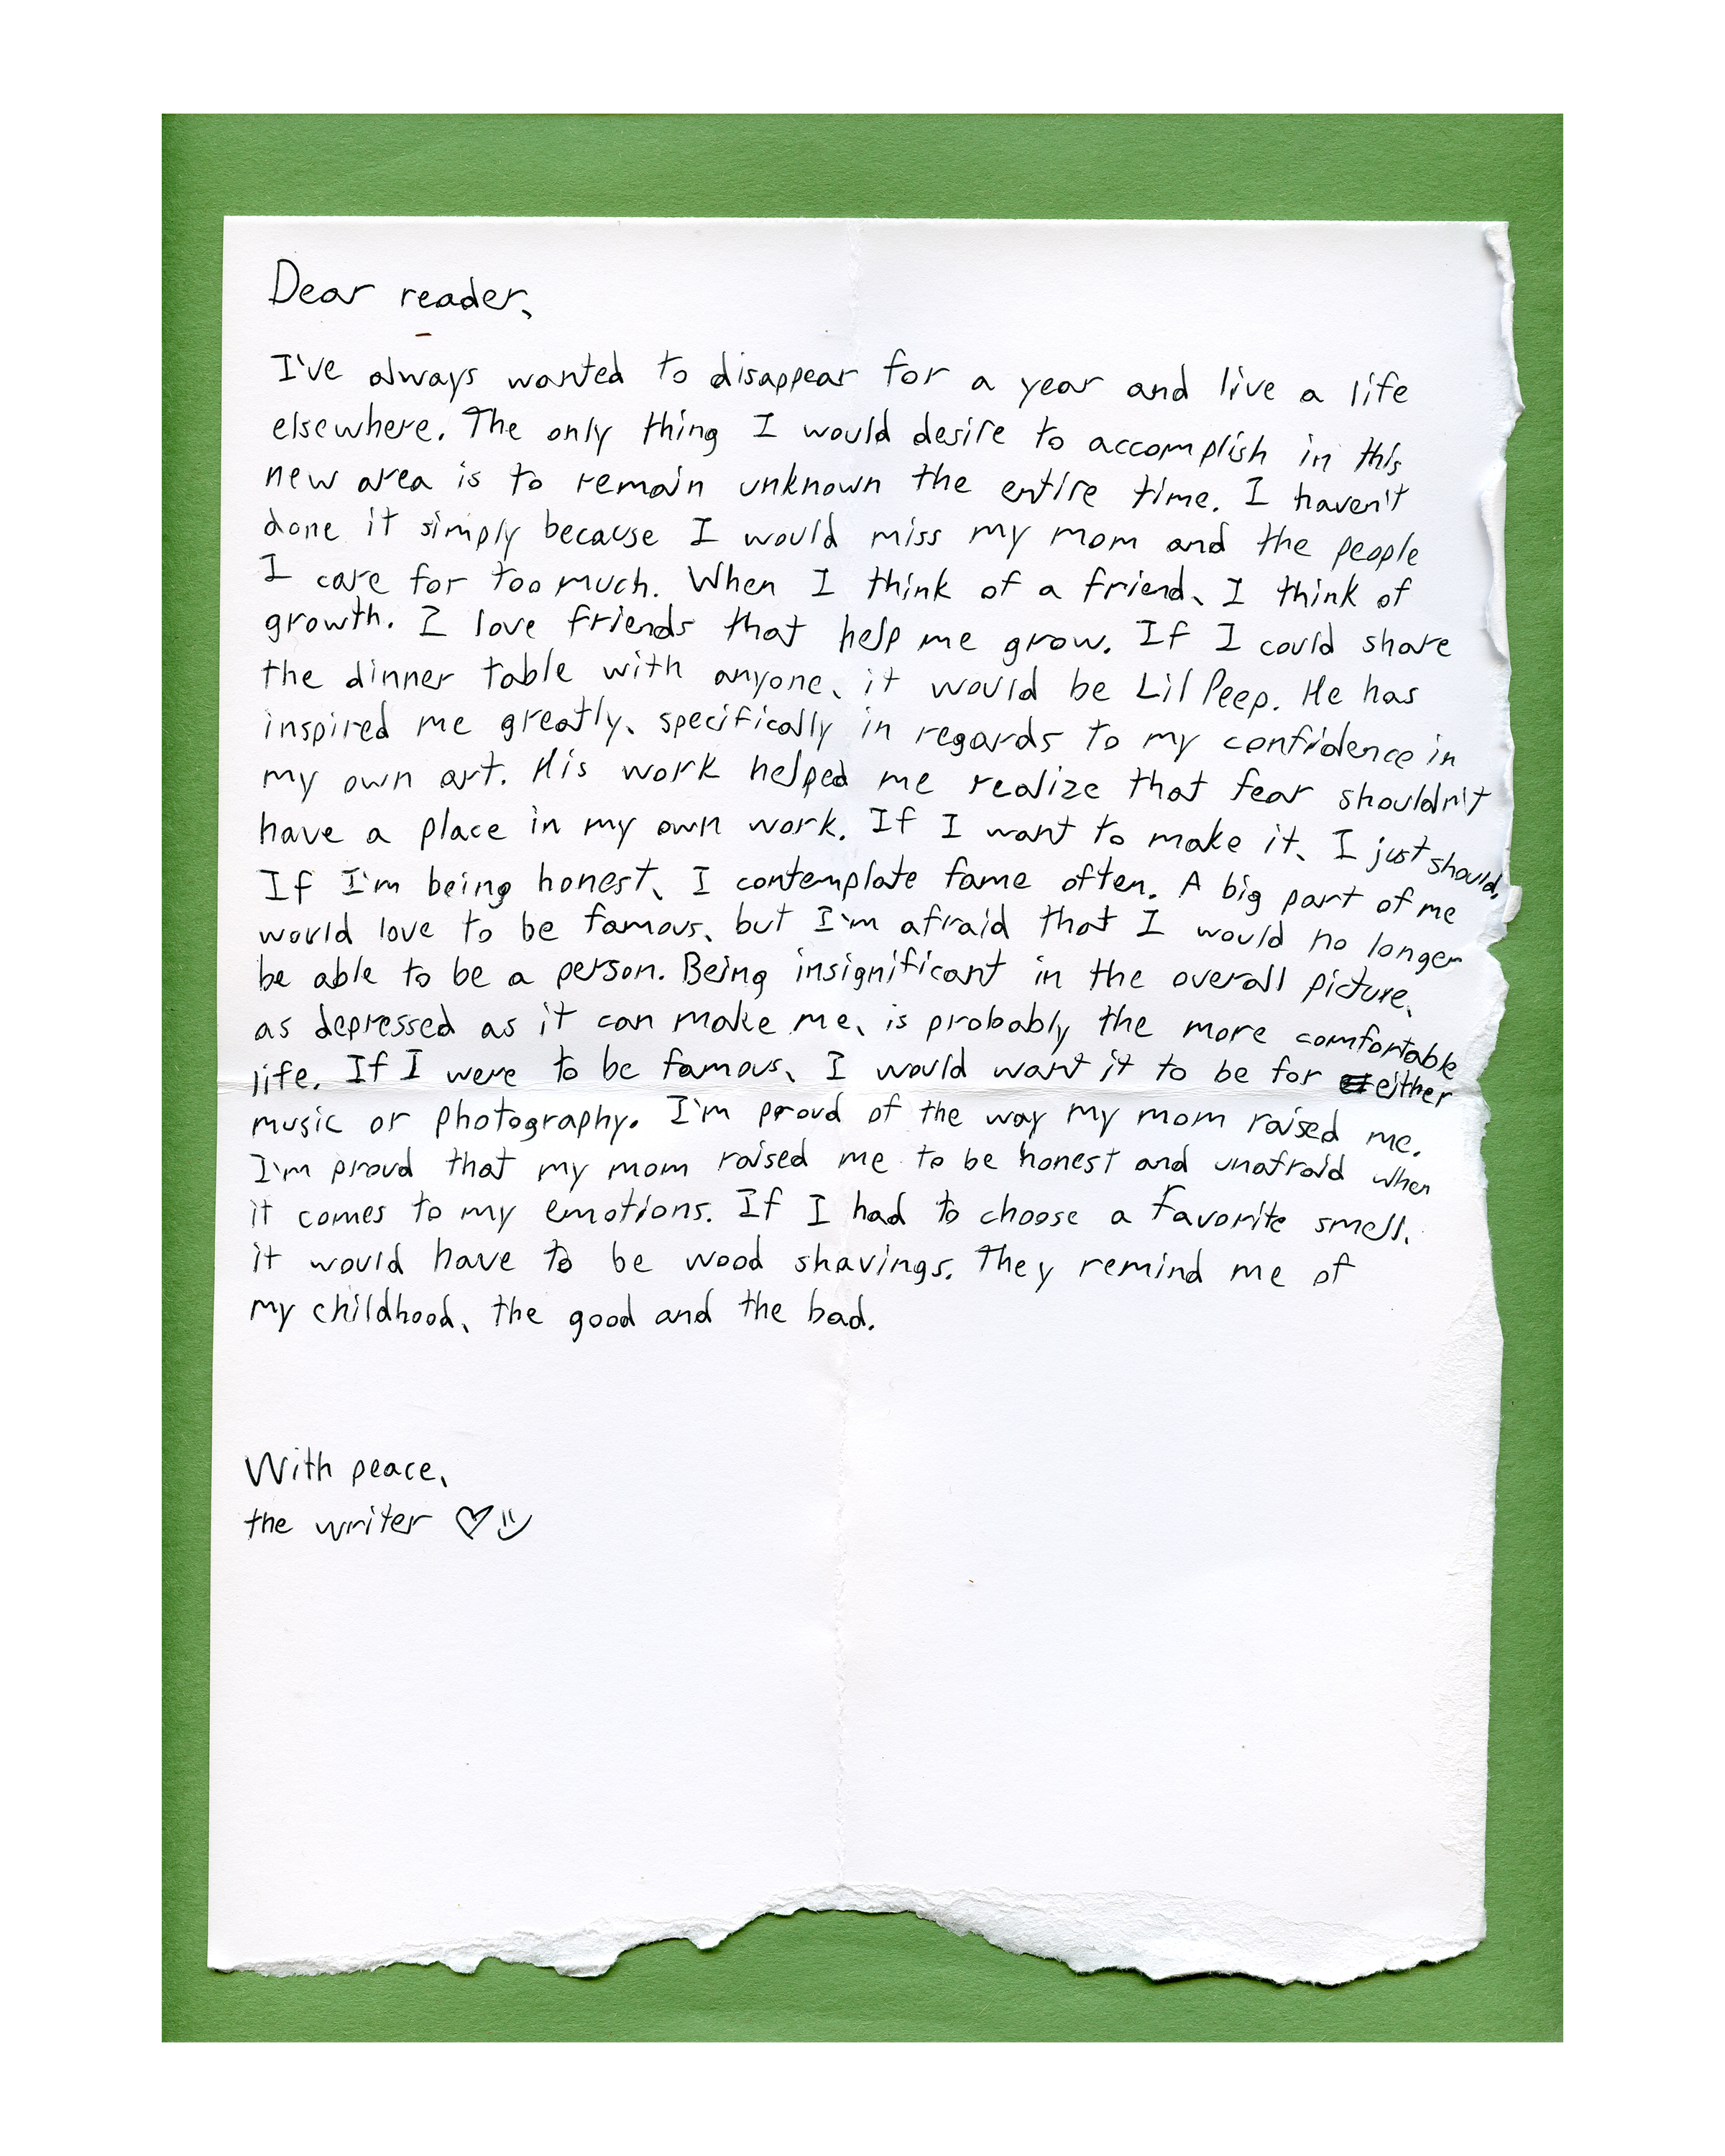 Dear reader,
I've always wanted to disappear for a year and live a life
elsewhere. The only thing I would desire to accomplish in this
new area is to remain unknown the entire time. I haven't
done it simply because I would miss my mom and the people
I care for too much. When I think of a friend, I think of
growth. I love friends that help me grow. If I could share
the dinner table with anyone, it would be Lil Peep. He has
inspired me greatly, specifically in regards to my confidence in
my own art. His work helped me realize that fear shouldn't
have a place in my own work. If I want to make it, I just should.
If I'm being honest, I contemplate fame often. A big part of me
would love to be famous, but I'm afraid that I would no longer
be able to be a person. Being insignificant in the overall picture,
as depressed as it can make me, is probably the more comfortable
life. If I were to be famous, I would want it to be for either
music or photography. I'm proud of the way my mom raised me.
I'm proud that my mom raised me to be honest and unafraid when
it comes to my emotions. If I had to choose a favorite smell,
it would have to be wood shavings. They remind me of
my childhood, the good and the bad.
With peace,
the writer ♡